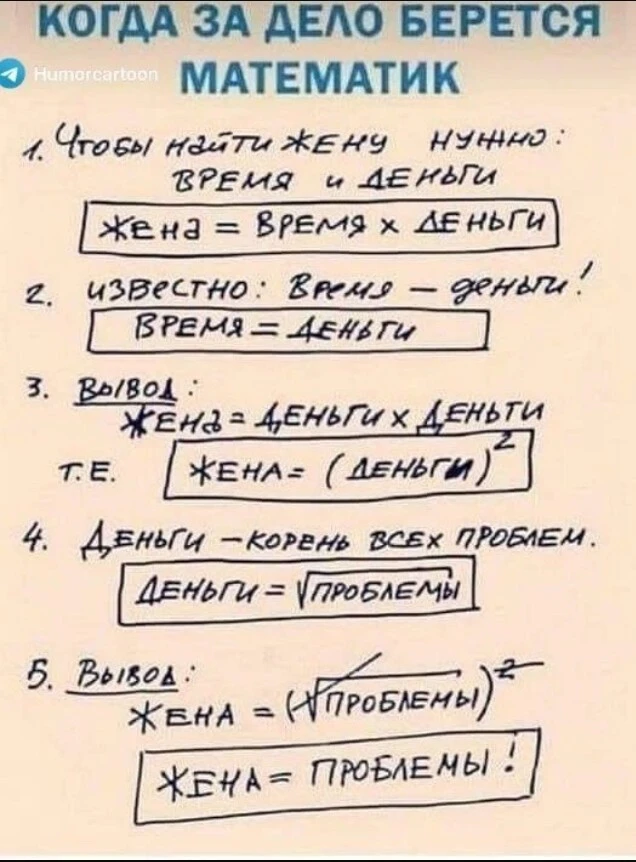 КОГДА ЗА ДЕЛО БЕРЕТСЯ
Humorcartoon
МАТЕМАТИК
1. Чтобы найти жену нужно:
время и деньги
жена = время х деньги
2. известно: Время – деньги!
время = деньги
3. Вывод:
жена = деньги х деньги
т.е. жена = (деньги)²
4. Деньги – корень всех проблем.
деньги = √проблемы
5. Вывод:
жена = (√проблемы)²
жена = проблемы!